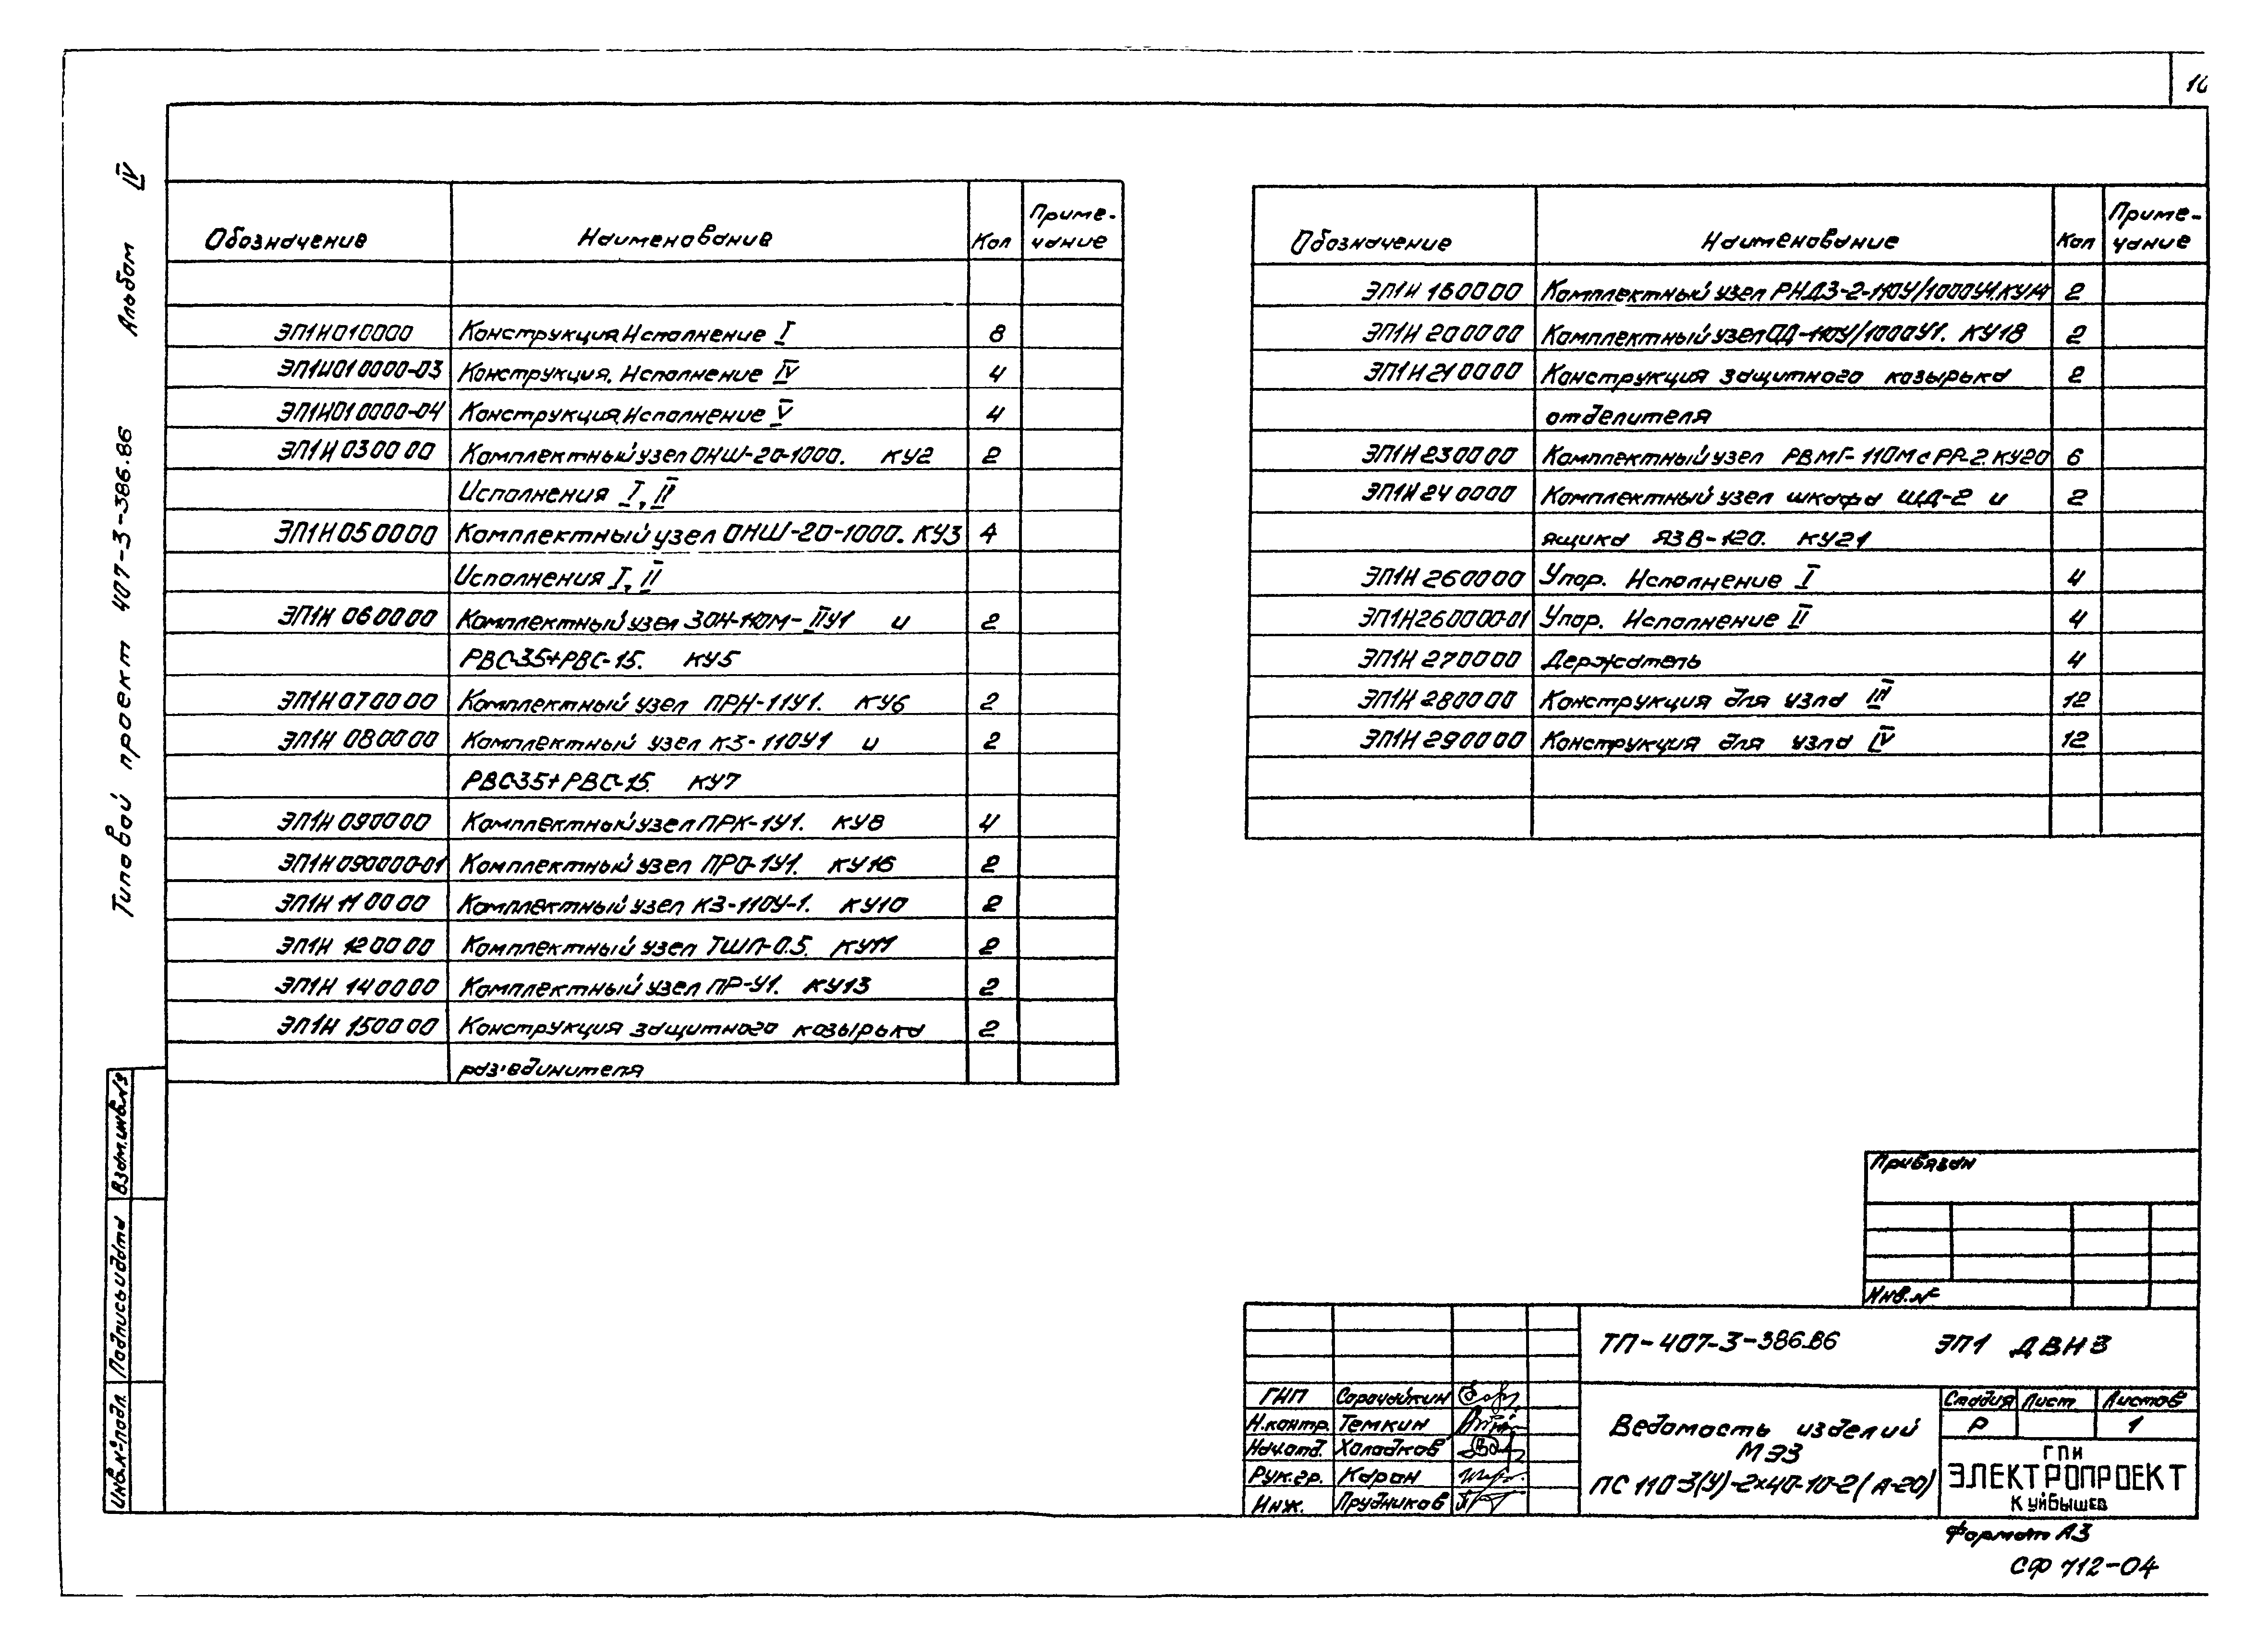 10
Альбом IV
Типовой проект 407-3-386.86
Обозначение Наименование Кол Приме-
чание
ЭП1Н010000 Конструкция. Исполнение I 8
ЭП1Н010000-03 Конструкция. Исполнение IV 4
ЭП1Н010000-04 Конструкция. Исполнение V 4
ЭП1Н030000 Комплектный узел ОНШ-20-1000. КУ2 2
Исполнения I, II
ЭП1Н050000 Комплектный узел ОНШ-20-1000. КУ3 4
Исполнения I, II
ЭП1Н060000 Комплектный узел ЗОН-110М-IIУ1 и 2
РВС-35+РВС-15. КУ5
ЭП1Н070000 Комплектный узел ПРН-11У1. КУ6 2
ЭП1Н080000 Комплектный узел КЗ-110У1 и 2
РВС-35+РВС-15. КУ7
ЭП1Н090000 Комплектный узел ПРК-1У1. КУ8 4
ЭП1Н090000-01 Комплектный узел ПРО-1У1. КУ16 2
ЭП1Н110000 Комплектный узел КЗ-110У-1. КУ10 2
ЭП1Н120000 Комплектный узел ТШЛ-0.5. КУ11 2
ЭП1Н140000 Комплектный узел ПР-У1. КУ13 2
ЭП1Н150000 Конструкция защитного козырька 2
раз'единителя
Обозначение Наименование Кол Приме-
чание
ЭП1Н160000 Комплектный узел РНДЗ-2-110У/1000У1.КУ14 2
ЭП1Н200000 Комплектный узел ОД-110У/1000У1. КУ18 2
ЭП1Н210000 Конструкция защитного козырька 2
отделителя
ЭП1Н230000 Комплектный узел РВМГ-110М с РР-2. КУ20 6
ЭП1Н240000 Комплектный узел шкафа ШД-2 и 2
ящика ЯЗВ-120. КУ21
ЭП1Н260000 Упор. Исполнение I 4
ЭП1Н260000-01 Упор. Исполнение II 4
ЭП1Н270000 Держатель 4
ЭП1Н280000 Конструкция для узла III 12
ЭП1Н290000 Конструкция для узла IV 12
Взам.инв.№
Подпись и дата
Инв.№ подл.
Привязан
Инв.№
ТП-407-3-386.86 ЭП1 ДВНЗ
ГИП Сорочайкин
Н.контр. Темкин
Нач.отд. Холодков
Рук.гр. Каран
Инж. Прудников
Ведомость изделий
МЭЗ
ПС 110-3(У)-2х40-10-2(А-20)
Стадия Лист Листов
Р 1
ГПИ
ЭЛЕКТРОПРОЕКТ
Куйбышев
Формат А3
СФ 712-04